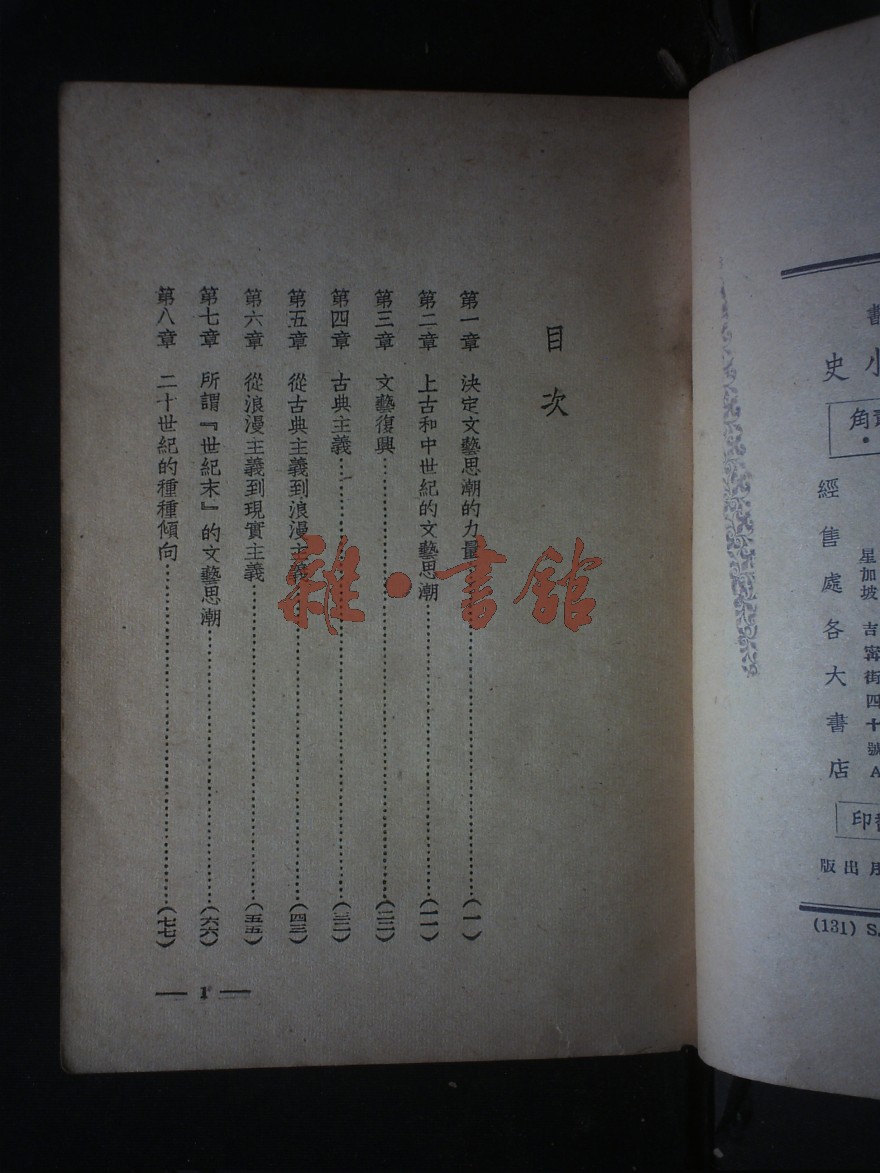 目次
第一章 決定文藝思潮的力量……(一)
第二章 上古和中世紀的文藝思潮……(一一)
第三章 文藝復興……(二二)
第四章 古典主義……(三二)
第五章 從古典主義到浪漫主義……(四三)
第六章 從浪漫主義到現實主義……(五五)
第七章 所謂『世紀末』的文藝思潮……(六六)
第八章 二十世紀的種種傾向……(七七)
— 1 —
雜·書館
小史
角
星加坡 吉寗街四十號A
經售處各大書店
印
出版
(131) S.